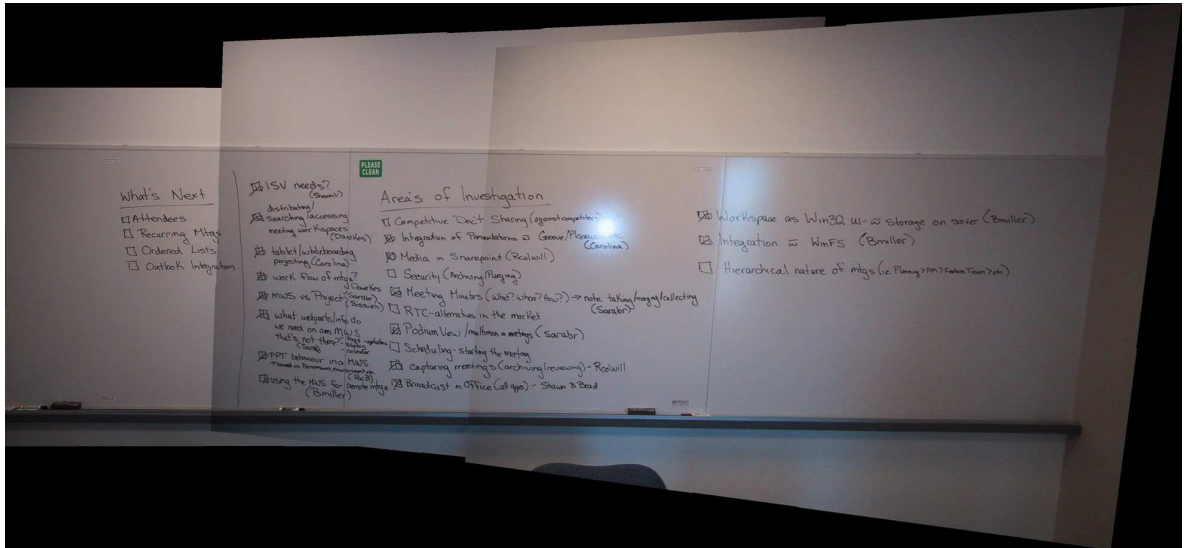 PLEASE
CLEAN
What's Next
Attendees
Recurring Mtgs
Ordered Lists
Outlook Integration
ISV needs?
(ShawnV)
distributing/
searching/accessing
meeting workspaces
(DaveKes)
tablet/whiteboarding
projecting (Carolina)
work flow of mtgs?
DaveKes
MWS vs Project (Sarabr)
(Sission)
what webparts/info do
we need on an MWS
that's not there? -
(Sarabr)
calendar
PPT behaviour in a MWS
(Ric B)
using the MWS for remote mtgs
(Bmiller)
Area's of Investigation
Competitive Doc't Sharing (against competitors
Integration of Presentations w Groove/
(Carolina)
Media in Sharepoint (Rcolwill)
Security (Archiving/Purging)
Meeting Minutes (What? when? how?) → note taking/merging/collecting
(Sarabr)
RTC-alternatives in the market
Podium View / multimon in meetings (Sarabr)
Scheduling - starting the meeting
capturing meetings (archiving/reviewing) - Rcolwill
Broadcast in Office (all apps) - Shawn & Brad
Workspace as Win32 UI - w storage on server (Bmiller)
Integration w WinFS (Bmiller)
Hierarchical nature of mtgs (ie. Planning > PM > Feature Team > etc)